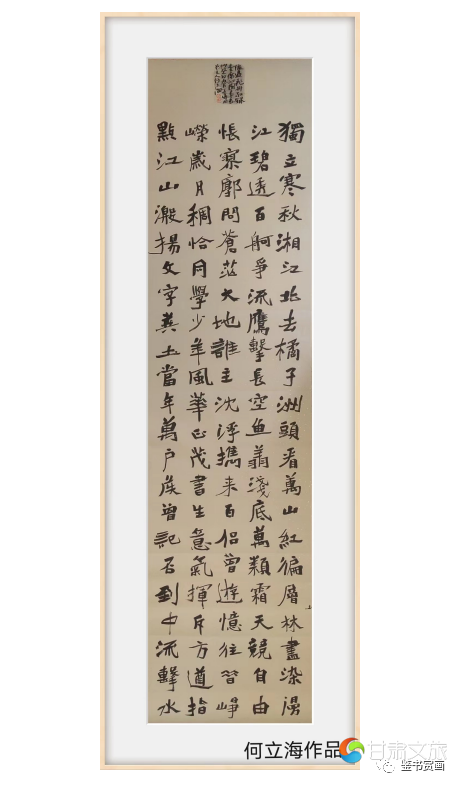 獨立寒秋湘江北去橘子洲頭看萬山紅徧層林盡染漫
江碧透百舸爭流鷹擊長空鱼翔淺底萬類霜天競自由
悵寥廓問蒼茫大地誰主沈浮攜来百侣曾遊憶往昔崢
嶸歲月稠恰同學少年風華正茂書生意氣揮斥方遒指
點江山激揚文字糞土當年萬户侯曾記否到中流擊水
何立海作品
甘肃文旅
鉴书赏画